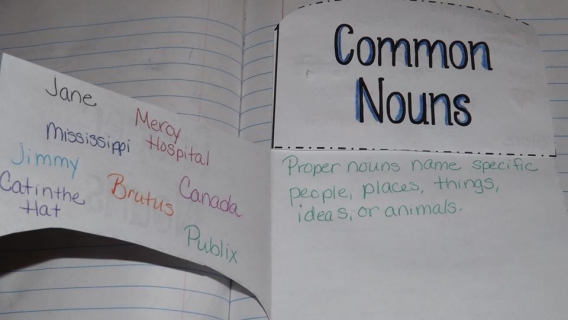 Jane
Mercy
Hospital
Mississippi
Jimmy
Cat in the
Hat
Brutus
Canada
Publix
Common
Nouns
Proper nouns name specific
people, places, things,
ideas, or animals.